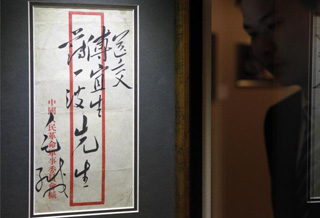 送交
傅宜生
薄一波 先生
中國人民革命軍事委員會緘
毛緘